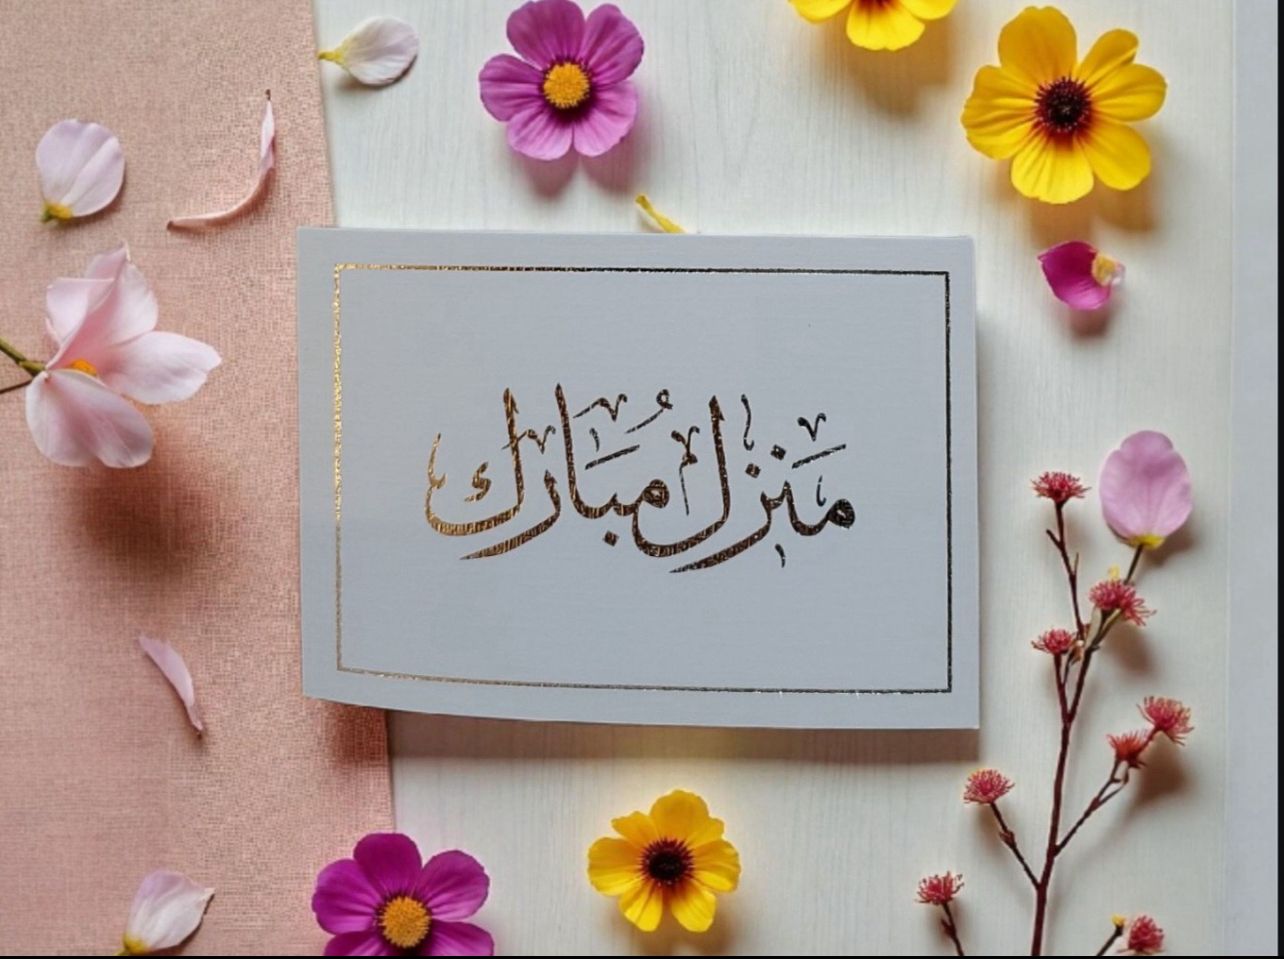 منزل مُبارك